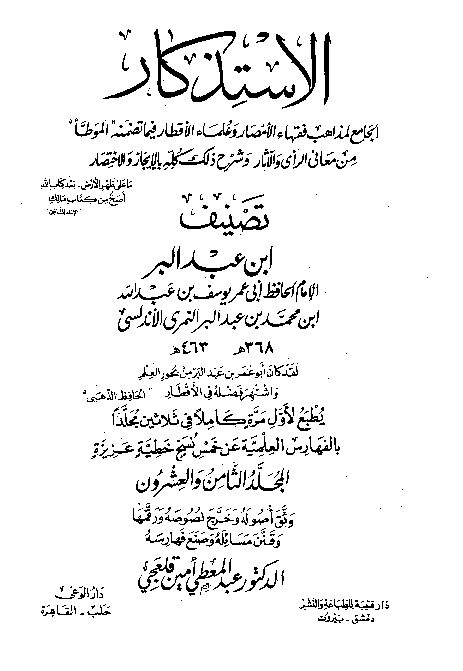 الاستذكار
الجامع لمذاهب فقهاء الأمصار وعلماء الأقطار فيما تضمنه "الموطأ"
من معاني الرأي والآثار وشرح ذلك كله بالإيجاز والاختصار
ما على ظهر الأرض - بعد كتاب الله
أصح من كتاب مالك
تصنيف
ابن عبد البر
الإمام الحافظ أبي عمر يوسف بن عبد الله
ابن محمد بن عبد البر النمري الأندلسي
٣٦٨هـ ٤٦٣هـ
لقد كان أبو عمر بن عبد البر من بحور العلم
واشتهر فضله في الأقطار "الحافظ الذهبي"
يُطبع لأول مرة كاملاً في ثلاثين مجلدًا
بالفهارس العلمية عن خمس نسخ خطية عزيزة
المجلد الثامن والعشرون
وثق أصوله وخرج نصوصه ورقمها
وقنن مسائله وصنع فهارسه
الدكتور عبد المعطي أمين قلعجي
دار قتيبة للطباعة والنشر
دمشق - بيروت
دار الوعي
حلب - القاهرة